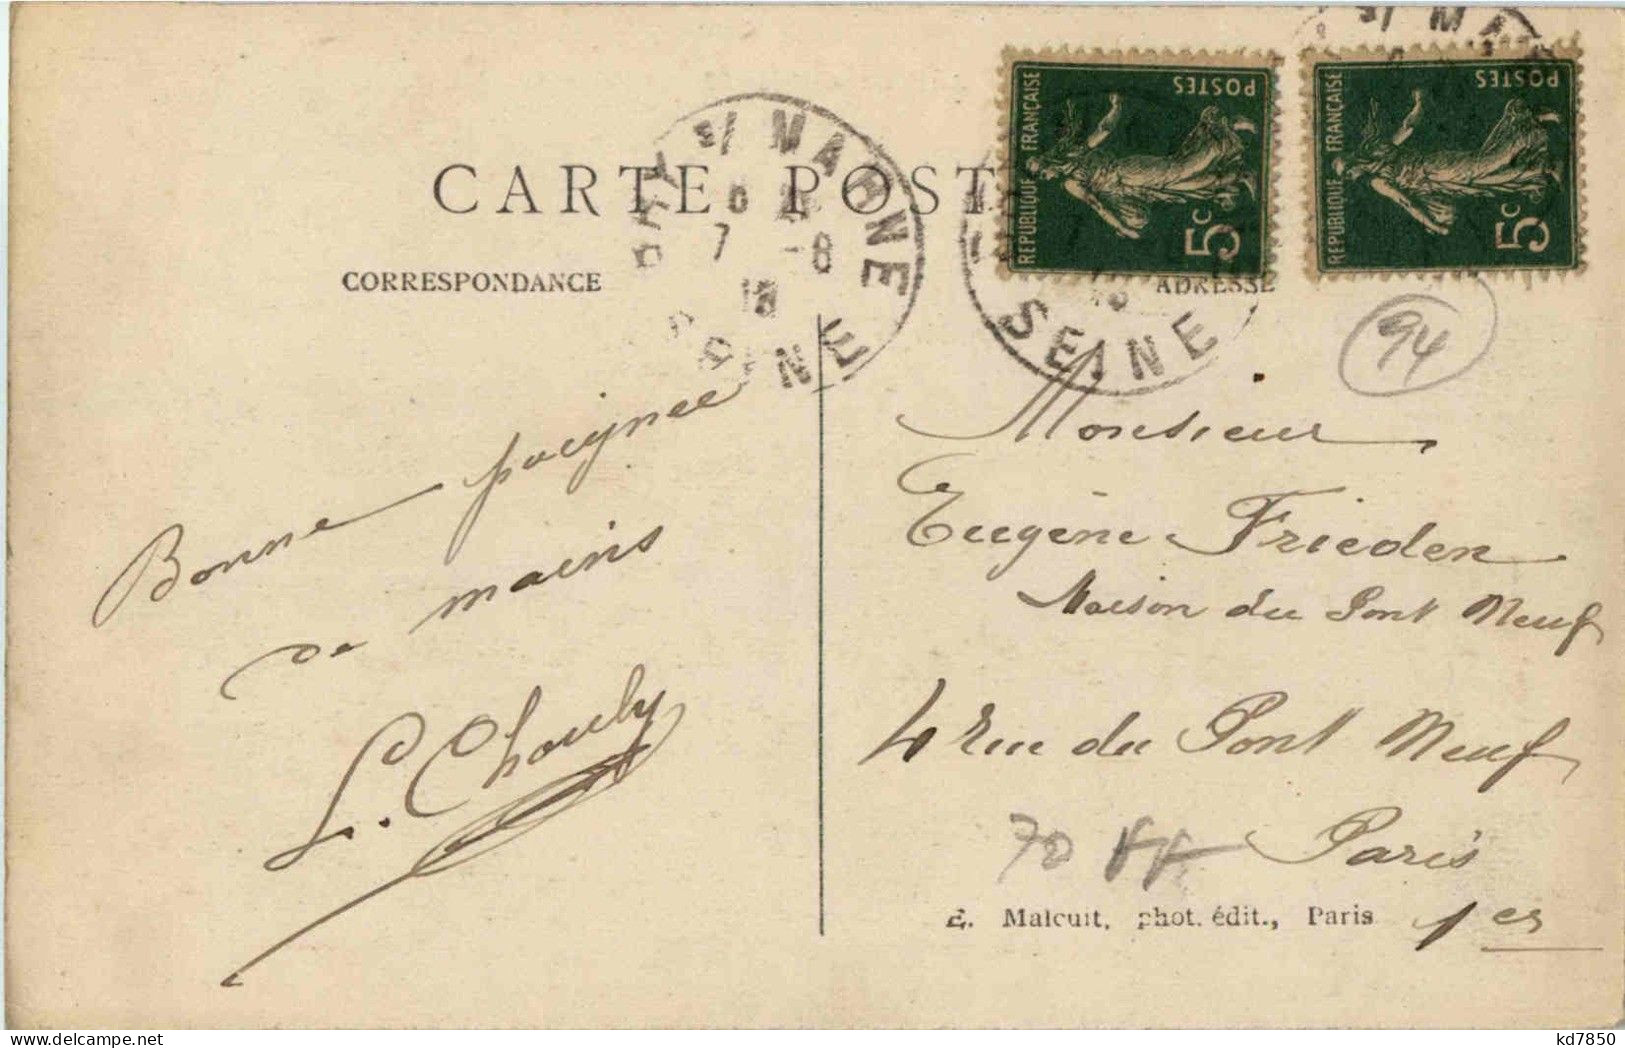 CARTE POST
CORRESPONDANCE
ADRESSE
RÉPUBLIQUE FRANÇAISE
POSTES
5c
RÉPUBLIQUE FRANÇAISE
POSTES
5c
S/ MARNE
7 -8
SEINE
S/ MA
94
Bonne poignée
de mains
L. Chouly
Monsieur
Eugène Frieden
Maison du Pont Neuf
4 Rue du Pont Neuf
Paris
1er
70
E. Malcuit, phot. édit., Paris
kd7850